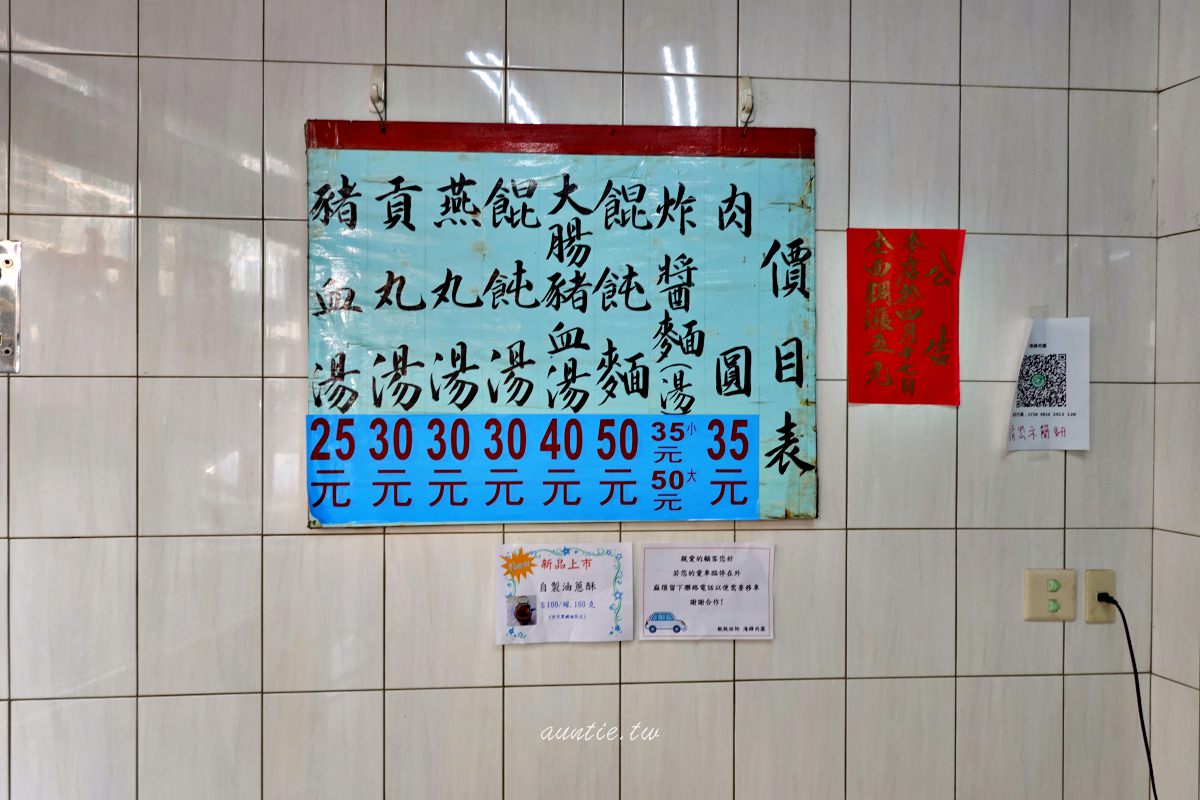 價目表
肉圓
35元
炸醬麵(湯)
小 35元
大 50元
餛飩麵
50元
大腸豬血湯
40元
餛飩湯
30元
燕丸湯
30元
貢丸湯
30元
豬血湯
25元
公告
本店於四月十七日
全面調漲五元
New
新品上市
自製油蔥酥
$100/罐,160克
親愛的顧客您好
若您的愛車臨停在外
麻煩留下聯絡電話以便需要移車
謝謝合作!
海鋒肉圓
auntie.tw